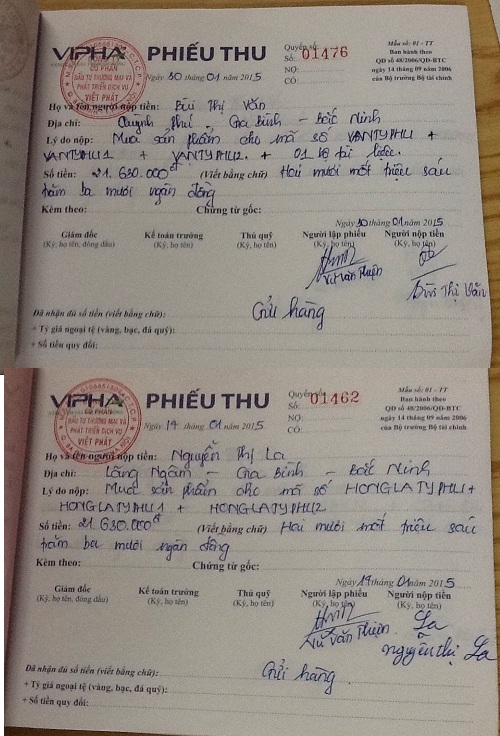 VIPHA PHIẾU THU
Quyển số:
Số: 01476
NỢ:
CÓ:
Mẫu số: 01 - TT
Ban hành theo
QĐ số 48/2006/QĐ-BTC
ngày 14 tháng 09 năm 2006
của Bộ trưởng Bộ tài chính
CỔ PHẦN
ĐẦU TƯ THƯƠNG MẠI VÀ
PHÁT TRIỂN DỊCH VỤ
VIỆT PHÁT
Ngày 30 tháng 01 năm 2015
Họ và tên người nộp tiền: Bùi Thị Vân
Địa chỉ: Quỳnh Phú - Gia Bình - Bắc Ninh
Lý do nộp: Mua sản phẩm cho mã số VANTYPHU +
VANTYPHU1 + VANTYPHU2 + 01 bộ tài liệu.
Số tiền: 21.630.000đ (Viết bằng chữ) Hai mươi mốt triệu sáu
trăm ba mươi ngàn đồng
Kèm theo: Chứng từ gốc:
Ngày 30 tháng 01 năm 2015
Giám đốc Kế toán trưởng Thủ quỹ Người lập phiếu Người nộp tiền
(Ký, họ tên, đóng dấu) (Ký, họ tên) (Ký, họ tên) (Ký, họ tên) (Ký, họ tên)
Vũ Văn Thiện
Bùi Thị Vân
Đã nhận đủ số tiền (viết bằng chữ): Gửi hàng
+ Tỷ giá ngoại tệ (vàng, bạc, đá quý):
+ Số tiền quy đổi:
VIPHA PHIẾU THU
Quyển số:
Số: 01462
NỢ:
CÓ:
Mẫu số: 01 - TT
Ban hành theo
QĐ số 48/2006/QĐ-BTC
ngày 14 tháng 09 năm 2006
của Bộ trưởng Bộ tài chính
CỔ PHẦN
ĐẦU TƯ THƯƠNG MẠI VÀ
PHÁT TRIỂN DỊCH VỤ
VIỆT PHÁT
Ngày 19 tháng 01 năm 2015
Họ và tên người nộp tiền: Nguyễn Thị La
Địa chỉ: Lãng Ngâm - Gia Bình - Bắc Ninh
Lý do nộp: Mua sản phẩm cho mã số HONGLATYPHU +
HONGLATYPHU1 + HONGLATYPHU2
Số tiền: 21.630.000đ (Viết bằng chữ) Hai mươi mốt triệu sáu
trăm ba mươi ngàn đồng
Kèm theo: Chứng từ gốc:
Ngày 19 tháng 01 năm 2015
Giám đốc Kế toán trưởng Thủ quỹ Người lập phiếu Người nộp tiền
(Ký, họ tên, đóng dấu) (Ký, họ tên) (Ký, họ tên) (Ký, họ tên) (Ký, họ tên)
Vũ Văn Thiện
La
Nguyễn Thị La
Đã nhận đủ số tiền (viết bằng chữ): Gửi hàng
+ Tỷ giá ngoại tệ (vàng, bạc, đá quý):
+ Số tiền quy đổi: